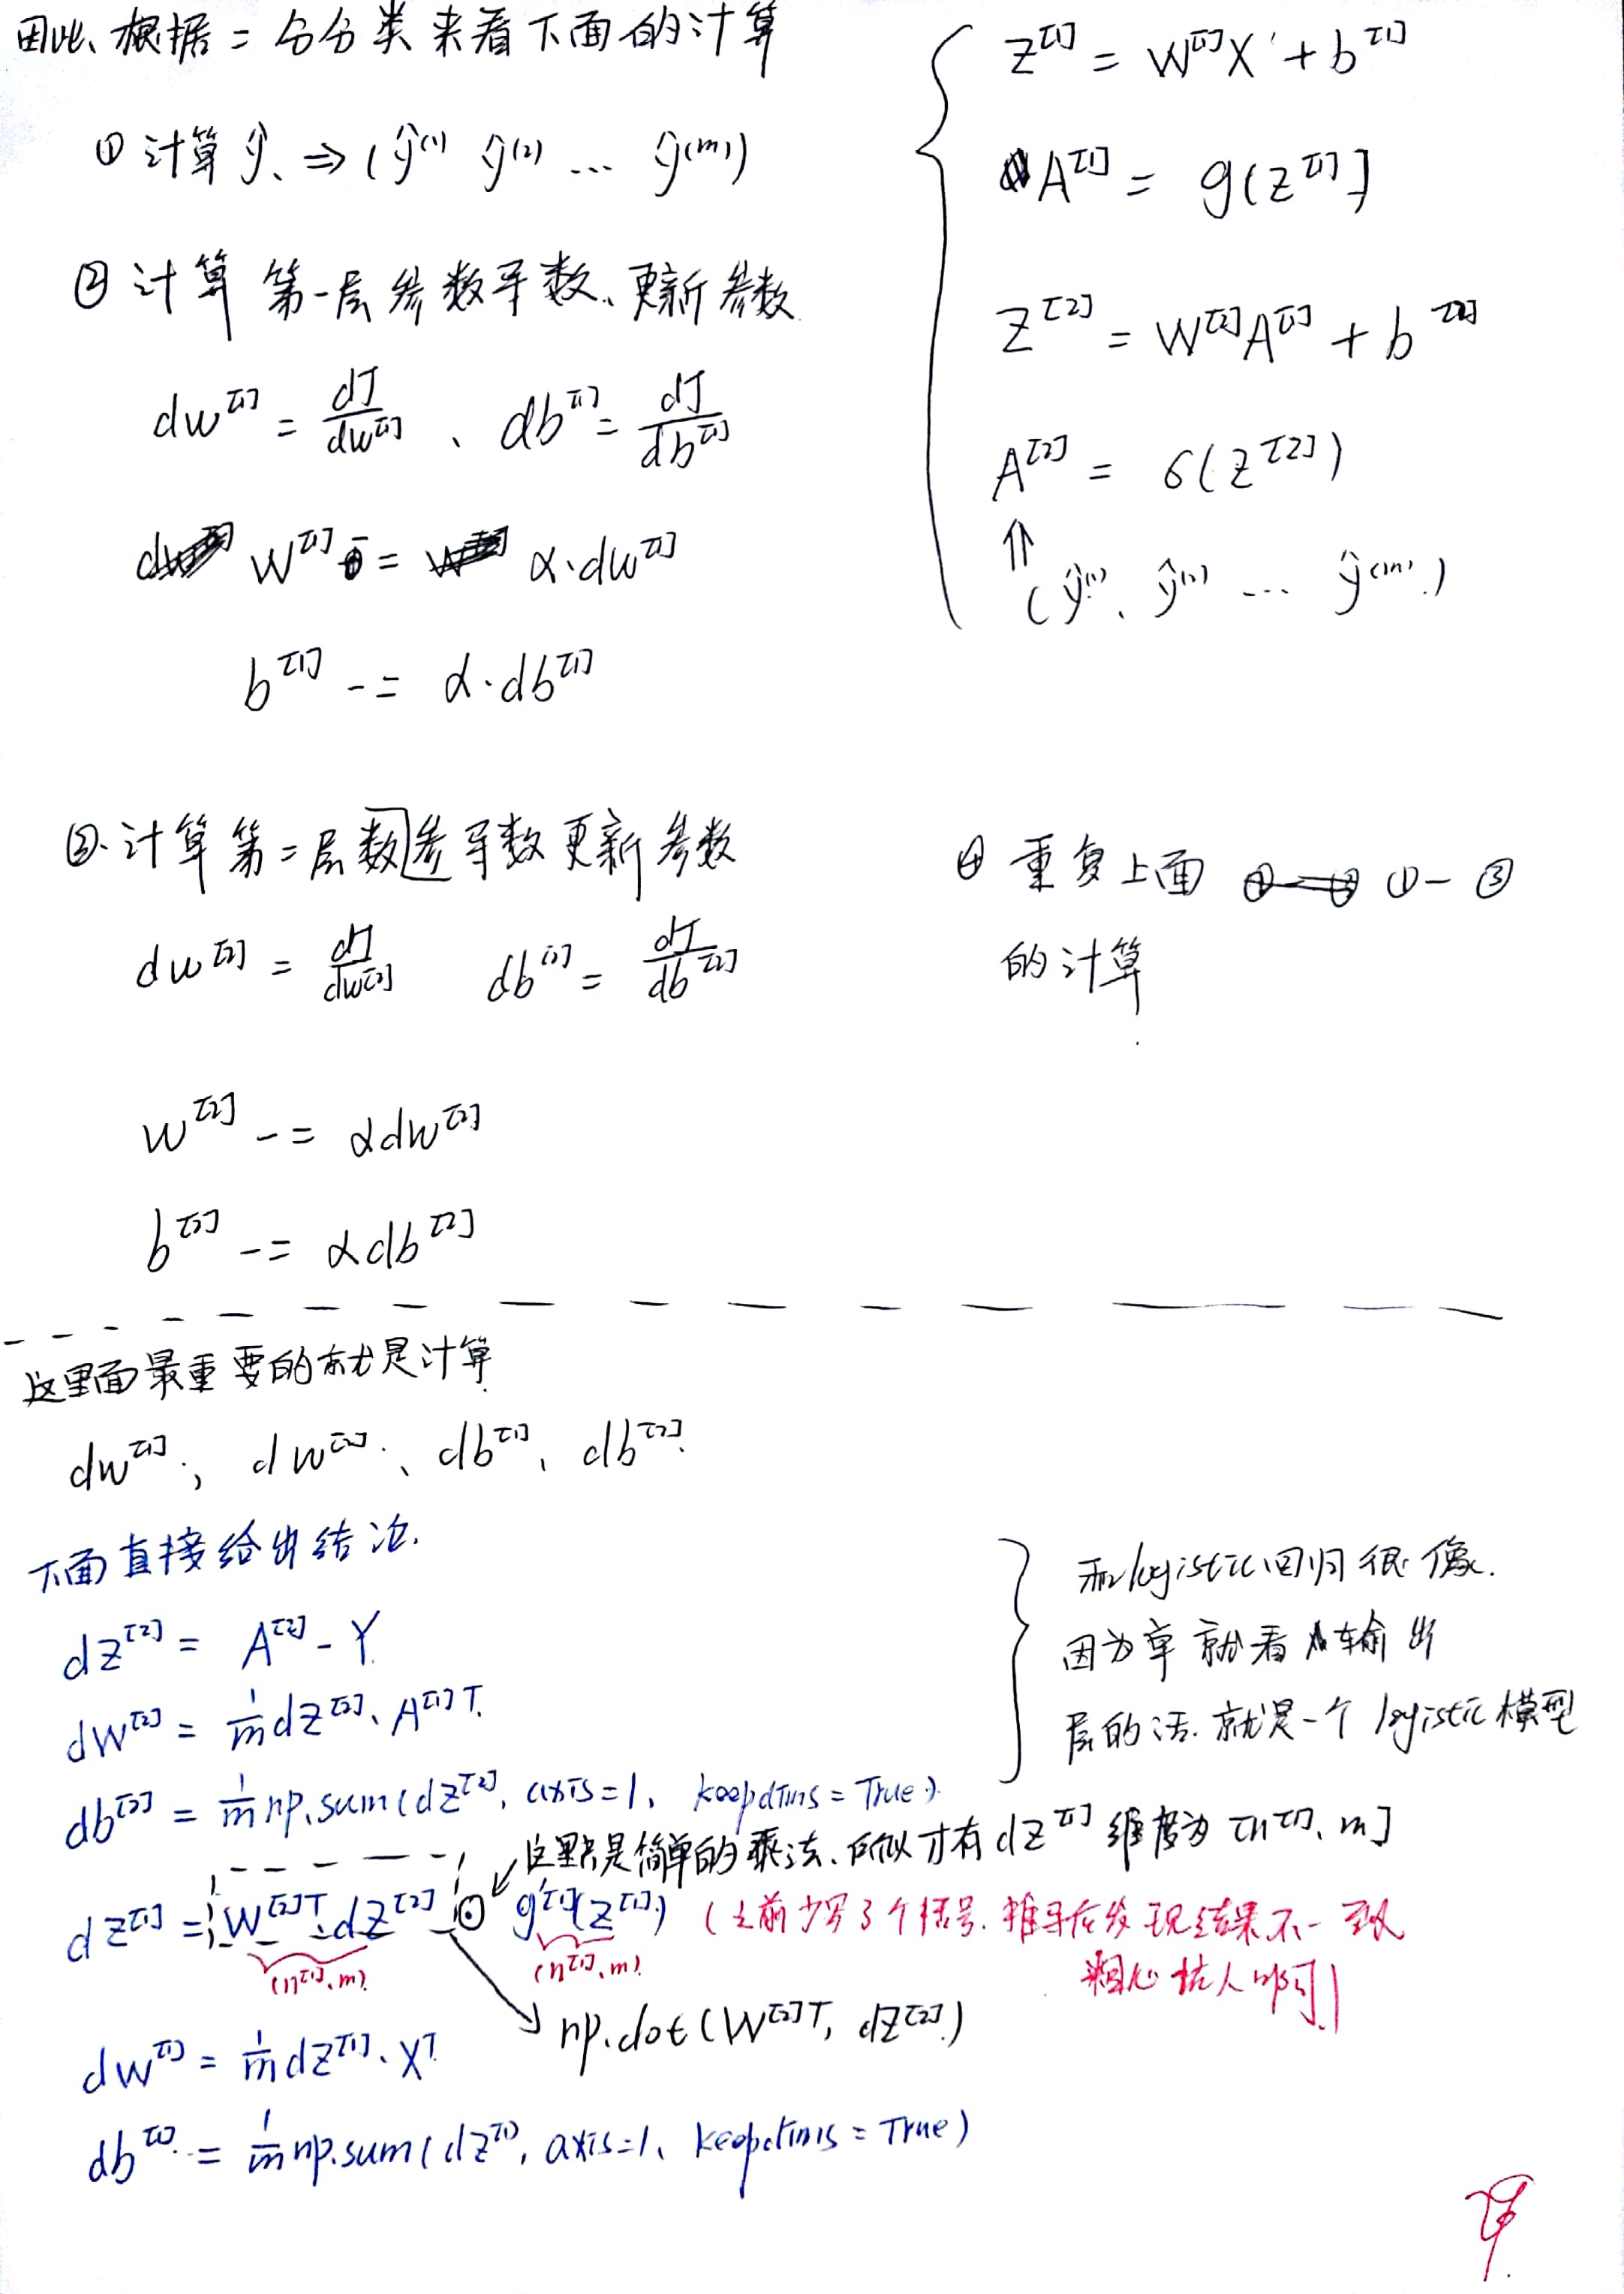 因此、根据二分分类来看下面的计算
① 计算 ŷ、⇒ (ŷ⁽¹⁾ ŷ⁽²⁾ … ŷ⁽ᵐ⁾)
② 计算 第一层参数导数、更新参数
dw^[1] = dJ/dw^[1] 、 db^[1] = dJ/db^[1]
W^[1] -= α·dw^[1]
b^[1] -= α·db^[1]
Z^[1] = W^[1]X + b^[1]
A^[1] = g(Z^[1])
Z^[2] = W^[2]A^[1] + b^[2]
A^[2] = σ(Z^[2])
⇑
(ŷ⁽¹⁾、ŷ⁽²⁾ … ŷ⁽ᵐ⁾)
③、计算第二层数参导数更新参数
dw^[2] = dJ/dw^[2] db^[2] = dJ/db^[2]
W^[2] -= αdw^[2]
b^[2] -= αdb^[2]
④ 重复上面 ①—③
的计算
这里面最重要的就是计算
dw^[1]、dw^[2]、db^[1]、db^[2]
下面直接给出结论.
dZ^[2] = A^[2] - Y
dW^[2] = 1/m dZ^[2]、A^[1]T
db^[2] = 1/m np.sum(dZ^[2], axis=1, keepdims=True)
和logistic回归很像.
因为单就看输出
层的话.就是一个logistic模型
这里是简单的乘法、所以才有dZ^[1]维度为[n^[1]、m]
dZ^[1] = W^[2]T·dZ^[2] ⊙ g'^[1](Z^[1])
(n^[1]、m)
(n^[1]、m)
(之前少写了个括号.推导后发现结果不一致
粗心怯人啊!)
np.dot(W^[2]T, dZ^[2])
dW^[1] = 1/m dZ^[1]、X^T
db^[1] = 1/m np.sum(dZ^[1], axis=1、keepdims=True)